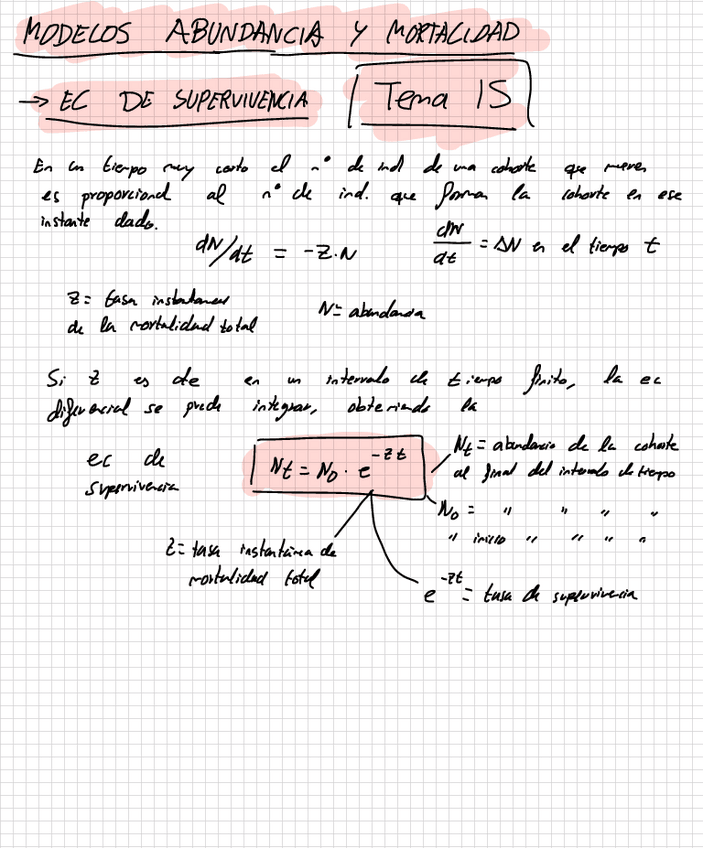 MODELOS ABUNDANCIA Y MORTALIDAD
→ EC DE SUPERVIVENCIA
Tema 15
En un tiempo muy corto el nº de ind de una cohorte que mueren
es proporcional al nº de ind. que forman la cohorte en ese
instante dado.
dN/dt = -Z·N
dN/dt = ΔN en el tiempo t
Z = tasa instantanea
de la mortalidad total
N = abundancia
Si Z es cte en un intervalo de tiempo finito, la ec
diferencial se puede integrar, obteniendo la
ec de
supervivencia
Nt = N0 · e^-Zt
Nt = abundancia de la cohorte
al final del intervalo de tiempo
N0 = " " " "
" inicio " " " "
Z = tasa instantánea de
mortalidad total
e^-Zt = tasa de supervivencia